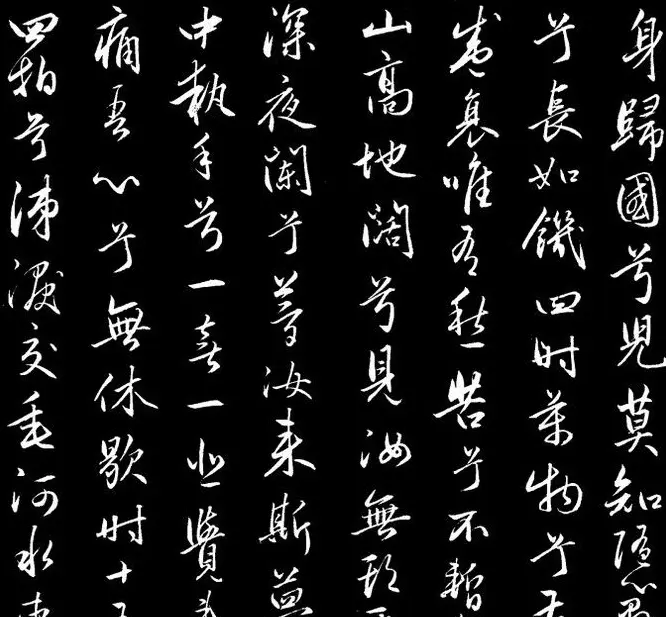 身歸國兮兒莫知隨心
兮長如饑四時萬物兮有
盛衰唯吾愁苦兮不暫
山高地闊兮見汝無期
深夜闌兮夢汝來斯夢
中執手兮一喜一悲覺
痛吾心兮無休歇時十
四拍兮涕淚交垂河水東